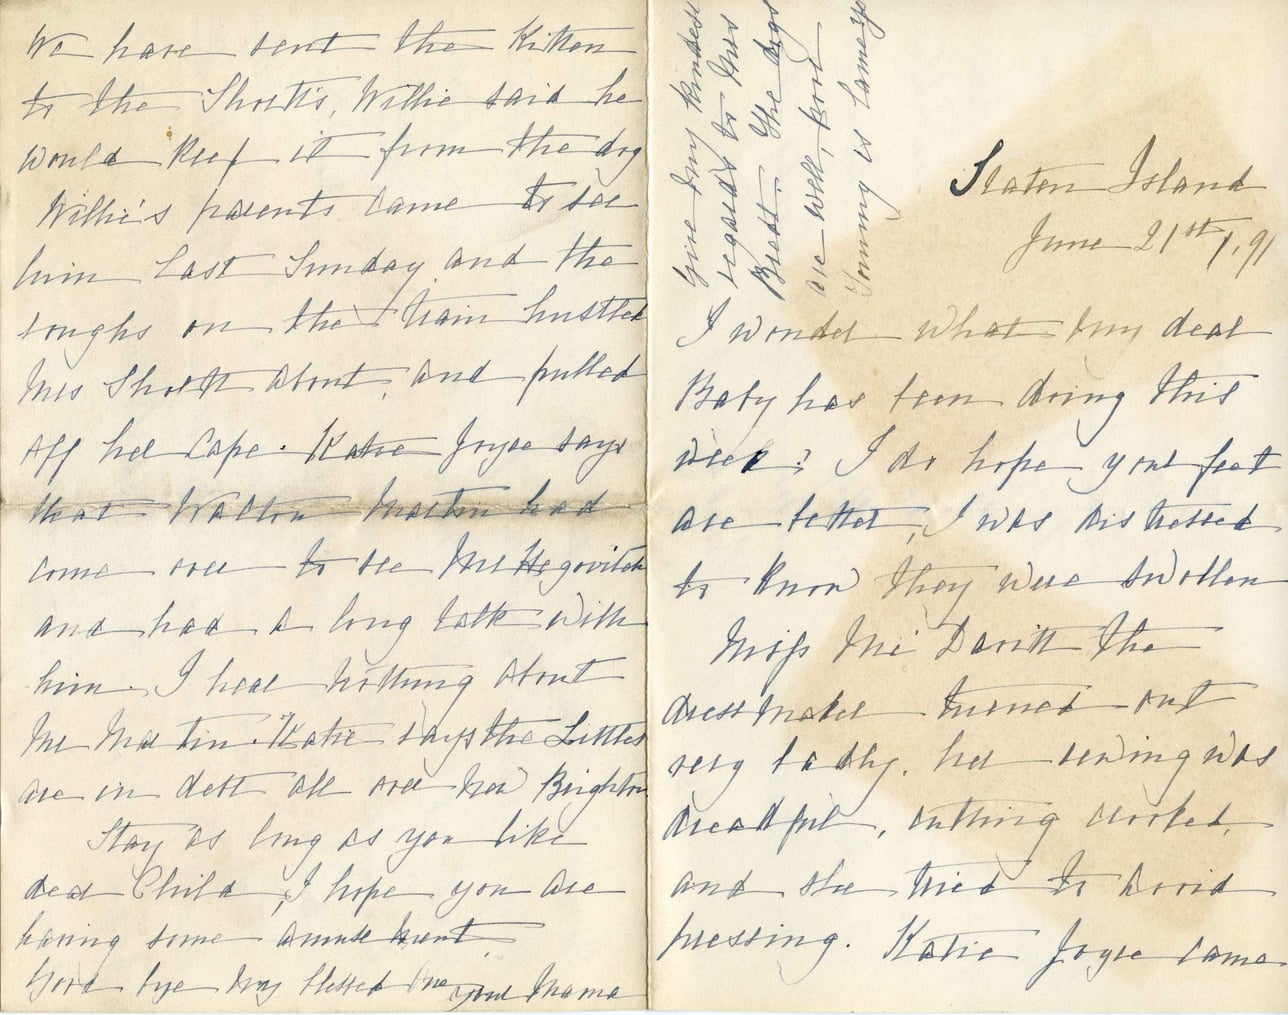 Staten Island
June 21st/, 91
I wonder what my dear
Baby has been doing this
week? I do hope your feet
are better, I was distressed
to know they were swollen
Miss Mc Davitt the
dressmaker turned out
very badly, her sewing was
dreadful, cutting crooked,
and she tried to avoid
pressing. Katie Joyce came
We have sent the Kitten
to the Shortt's, Willie said he
would keep it from the dog
Willie's parents came to see
him last Sunday and the
roughs on the train hustled
Mrs Shortt about, and pulled
off her Cape. Katie Joyce says
that Walton Martin had
come over to see Mr Hegovitch
and had a long talk with
him. I hear nothing about
Mr Martin. Katie says the Littles
are in debt all over New Brighton
Stay as long as you like
dear Child, I hope you are
having some amusement,
Good bye my blessed One your Mama
Give my kindest
regards to Mrs
Bredt. The dogs
are well, poor
Tommy is lame yet